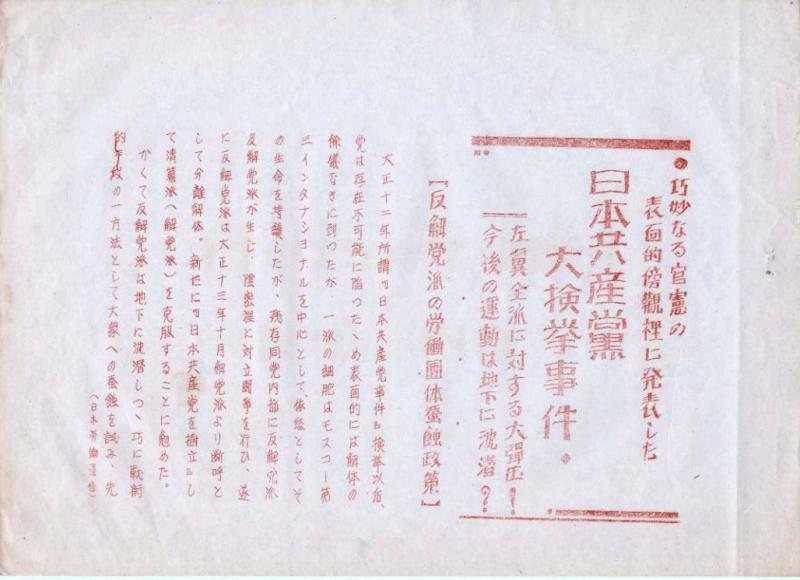 巧妙なる官憲の
表面的傍觀裡に発表した
日本共産黨
大検挙事件。
左翼全派に対する大彈圧!
今後の運動は地下に沈潜?
【反解党派の労働團体蚕蝕政策】
大正十二年所謂『日本共産党事件』検挙以后、
党は存在不可能に陥つたゝめ表面的には解体の
餘儀なきに到つたが 一派の細胞はモスコー第
三インタナシヨナルを中心として、依然としてそ
の生命を持續したが、残存同党内部に反解党派
反解党派が生じ 陰密裡に対立闘争を行ひ、遂
に反解党派は大正十三年十月解党派より断呼と
して分離解体、新たに『日本共産党を樹立』し
て清黨派へ解党派)を克服することに勉めた。
かくて反解党派は地下に沈潜しつゝ巧に戰術
的手段の一方法として大衆への蚕蝕を試み、先
(日本労働通信)